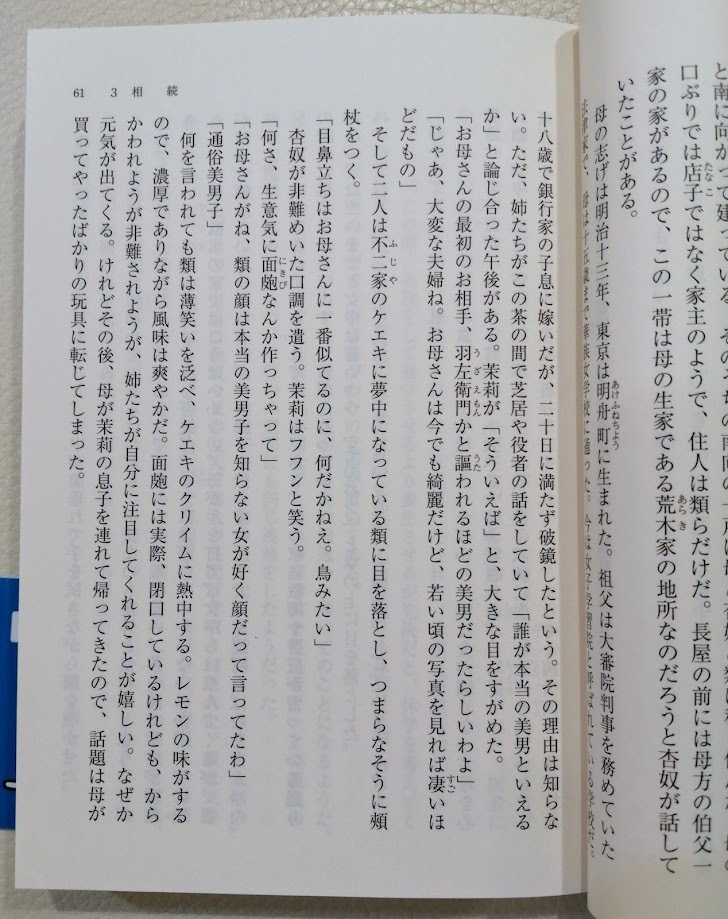 と南に向かって建っている。その
口ぶりでは店子ではなく家主のようで、住人は類らだけだ。長屋の前には母方の伯父一
家の家があるので、この一帯は母の生家である荒木家の地所なのだろうと杏奴が話して
いたことがある。
母の志げは明治十三年、東京は明舟町に生まれた。祖父は大審院判事を務めていた
法律家で、母は十五歳まで華族女学校に通った。今は女子学習院と呼ばれている学校だ。
61 3 相続
十八歳で銀行家の子息に嫁いだが、二十日に満たず破鏡したという。その理由は知らな
い。ただ、姉たちがこの茶の間で芝居や役者の話をしていて「誰が本当の美男といえる
か」と論じ合った午後がある。茉莉が「そういえば」と、大きな目をすがめた。
「お母さんの最初のお相手、羽左衛門かと謳われるほどの美男だったらしいわよ」
「じゃあ、大変な夫婦ね。お母さんは今でも綺麗だけど、若い頃の写真を見れば凄いほ
どだもの」
そして二人は不二家のケエキに夢中になっている類に目を落とし、つまらなそうに頰
杖をつく。
「目鼻立ちはお母さんに一番似てるのに、何だかねえ。鳥みたい」
杏奴が非難めいた口調を遣う。茉莉はフフンと笑う。
「何さ、生意気に面皰なんか作っちゃって」
「お母さんがね、類の顔は本当の美男子を知らない女が好く顔だって言ってたわ」
「通俗美男子」
何を言われても類は薄笑いを泛べ、ケエキのクリイムに熱中する。レモンの味がする
ので、濃厚でありながら風味は爽やかだ。面皰には実際、閉口しているけれども、から
かわれようが非難されようが、姉たちが自分に注目してくれることが嬉しい。なぜか
元気が出てくる。けれどその後、母が茉莉の息子を連れて帰ってきたので、話題は母が
買ってやったばかりの玩具に転じてしまった。